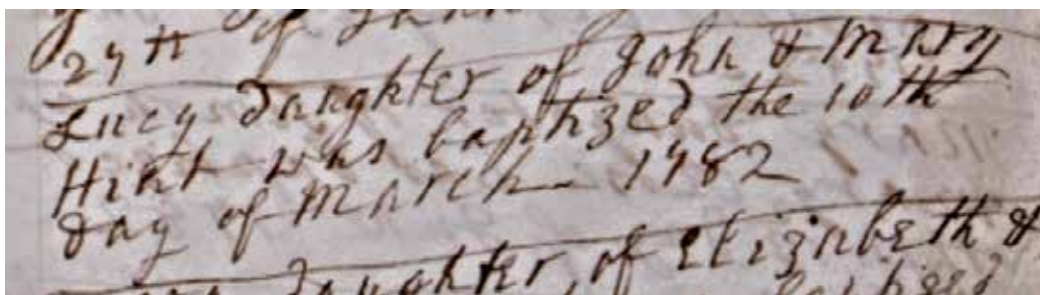 27th of
Lucy daughter of John & Mary
Hint was baptized the 10th
day of March 1782
daughter of Elizabeth &